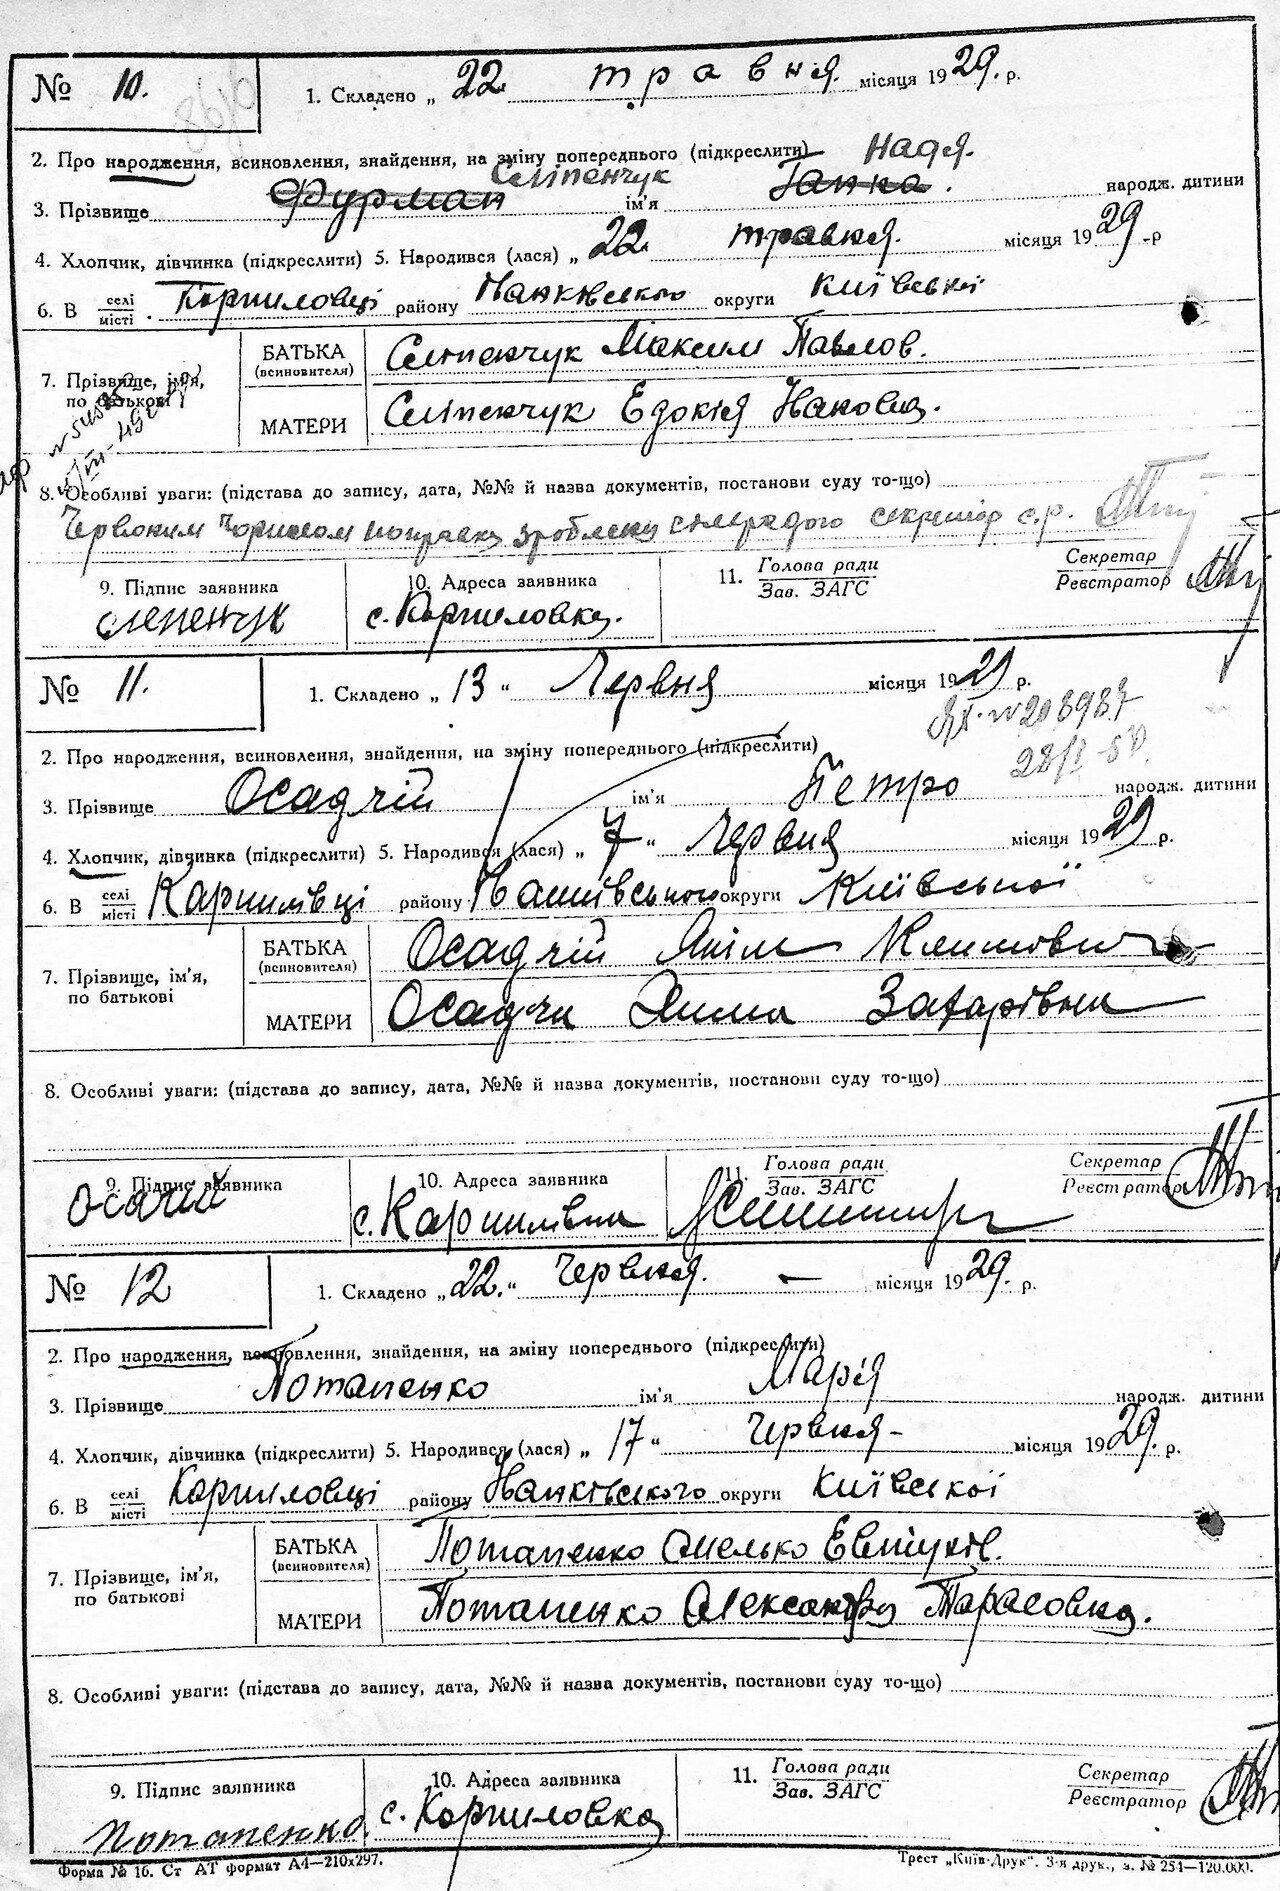 № 10. 1. Складено „ 22 травня. місяця 1929. р.
2. Про народження, всиновлення, знайдення, на зміну попереднього (підкреслити) Надя.
Сліпенчук
3. Прізвище Фурман ім'я Ганна. народж. дитини
4. Хлопчик, дівчинка (підкреслити) 5. Народився (лася) „ 22 травня. місяця 1929 -р
6. В селі/місті. Коршиловці району округи Київської
7. Прізвище, ім'я, по батькові
БАТЬКА (всиновителя) Сліпенчук Максим Павлов.
МАТЕРИ Сліпенчук
8. Особливі уваги: (підстава до запису, дата, №№ й назва документів, постанови суду то-що)
Червоним Чорнилом поправки секретар с.р.
9. Підпис заявника 10. Адреса заявника 11. Голова ради/Зав. ЗАГС Секретар/Реєстратор
слепенчук с. Коршиловка.
№ 11. 1. Складено „ 13 “ Червня місяця 1929 р.
№ 208987
2. Про народження, всиновлення, знайдення, на зміну попереднього (підкреслити)
3. Прізвище Осадчій ім'я Петро народж. дитини
4. Хлопчик, дівчинка (підкреслити) 5. Народився (лася) „ 7 “ Червня місяця 1929 р.
6. В селі/місті Каршилівці району округи Київської
7. Прізвище, ім'я, по батькові
БАТЬКА (всиновителя) Осадчій Яким Климович
МАТЕРИ Осадча Захарівна
8. Особливі уваги: (підстава до запису, дата, №№ й назва документів, постанови суду то-що)
9. Підпис заявника 10. Адреса заявника 11. Голова ради/Зав. ЗАГС Секретар/Реєстратор
Осачий с. Каршилівка
№ 12 1. Складено „ 22. “ Червня. — місяця 1929. р.
2. Про народження, всиновлення, знайдення, на зміну попереднього (підкреслити)
3. Прізвище Потапенко ім'я Марія народж. дитини
4. Хлопчик, дівчинка (підкреслити) 5. Народився (лася) „ 17 “ Червня - місяця 1929. р.
6. В селі/місті Коршиловці району округи Київської
7. Прізвище, ім'я, по батькові
БАТЬКА (всиновителя) Потапенко Омелько
МАТЕРИ Потапенко Олександра Тарасовна.
8. Особливі уваги: (підстава до запису, дата, №№ й назва документів, постанови суду то-що)
9. Підпис заявника 10. Адреса заявника 11. Голова ради/Зав. ЗАГС Секретар/Реєстратор
Потапенко с. Коршиловка
Форма № 16. Ст АТ формат А4—210х297. Трест „Київ-Друк“. 3-я друк., з. № 254—120.000.